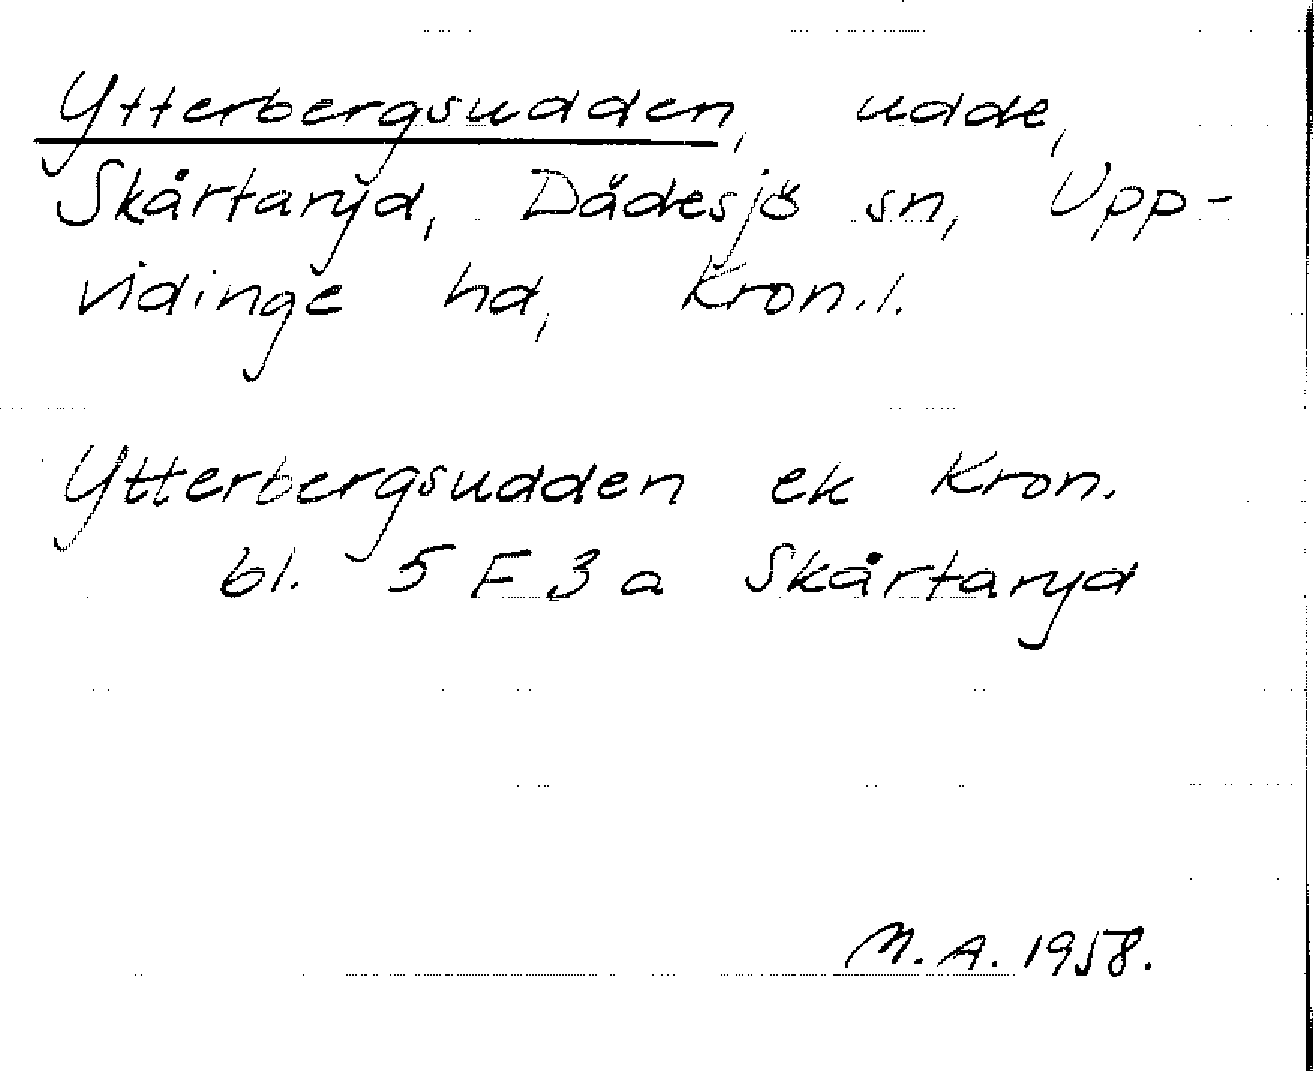 Ytterbergsudden, udde,
Skårtaryd, Dädesjö sn, Upp-
vidinge hd, Kron.l.
Ytterbergsudden ek Kron.
bl. 5 F 3 a Skårtaryd
M.A. 1958.